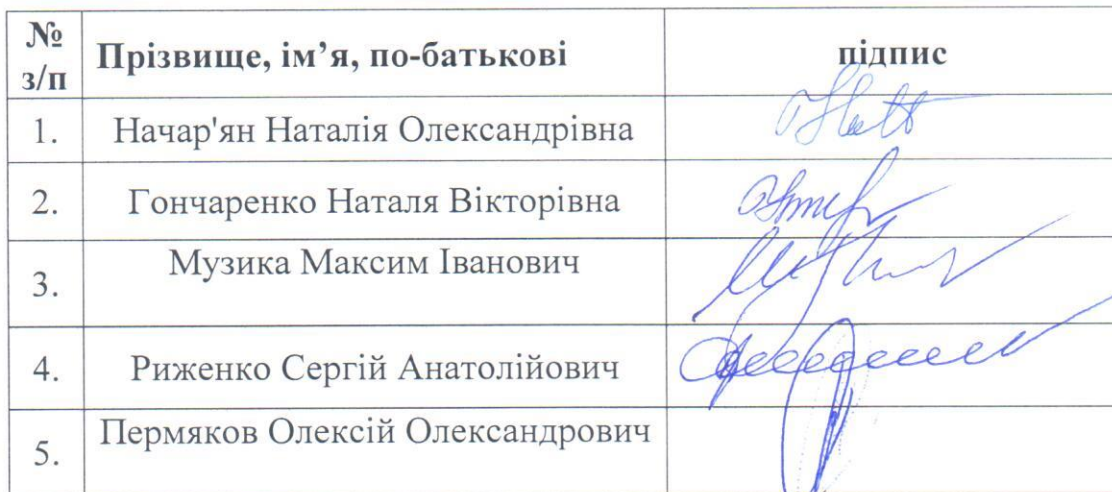 № з/п Прізвище, ім’я, по-батькові підпис
1. Начар'ян Наталія Олександрівна
2. Гончаренко Наталя Вікторівна
3. Музика Максим Іванович
4. Риженко Сергій Анатолійович
5. Пермяков Олексій Олександрович